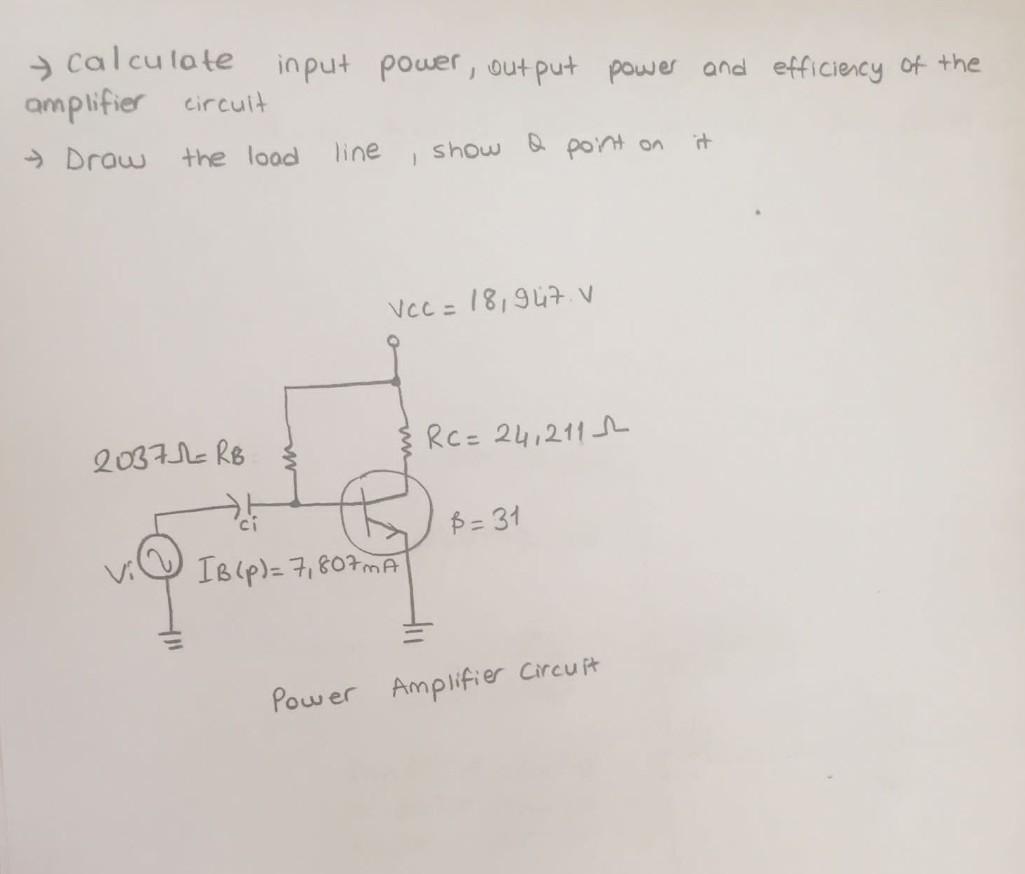 → calculate input power, output power and efficiency of the
amplifier circuit
→ Draw the load line, show Q point on it
VCC = 18,947 V
RC = 24,211 Ω
2037Ω = RB
Ci
β = 31
Vi
IB(p) = 7,807mA
Power Amplifier Circuit